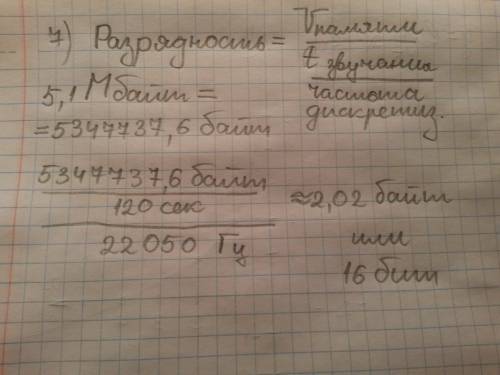 7) Разрядность = Vпамяти
t звучания
частота
дискретиз.
5,1 Мбайт =
= 5347737,6 байт
5347737,6 байт
120 сек
22050 Гц
≈ 2,02 байт
или
16 бит